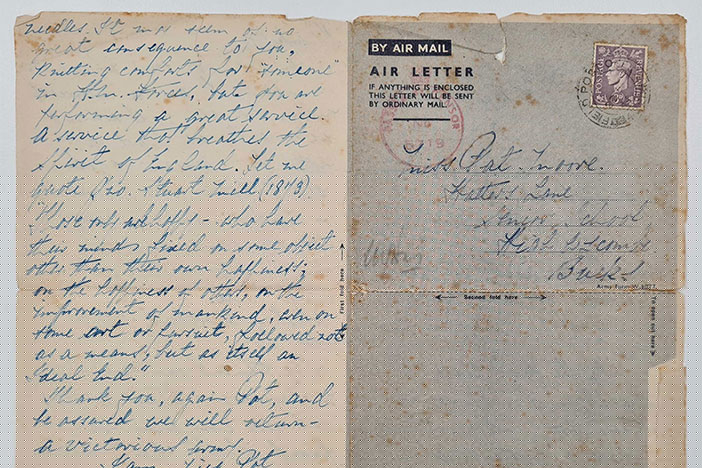 needles. It may seem of no
great consequence to you,
Knitting comforts for "someone"
in H.M. Forces, but you are
performing a great service
A service that breathes the
spirit of England. Let me
quote Jno. Stuart Mill (1873).
"Those only are happy - who have
their minds fixed on some object
other than their own happiness;
on the happiness of others, on the
improvement of mankind, even on
some art or pursuit, followed not
as a means, but as itself an
Ideal End."
Thank you, again Pat, and
be assured we will return -
a victorious
I am, Miss Pat
BY AIR MAIL
AIR LETTER
IF ANYTHING IS ENCLOSED
THIS LETTER WILL BE SENT
BY ORDINARY MAIL.
Miss Pat. Moore.
Hatters Lane
Senior School
High Wycombe
Bucks
First fold here
Second fold here
To open cut here